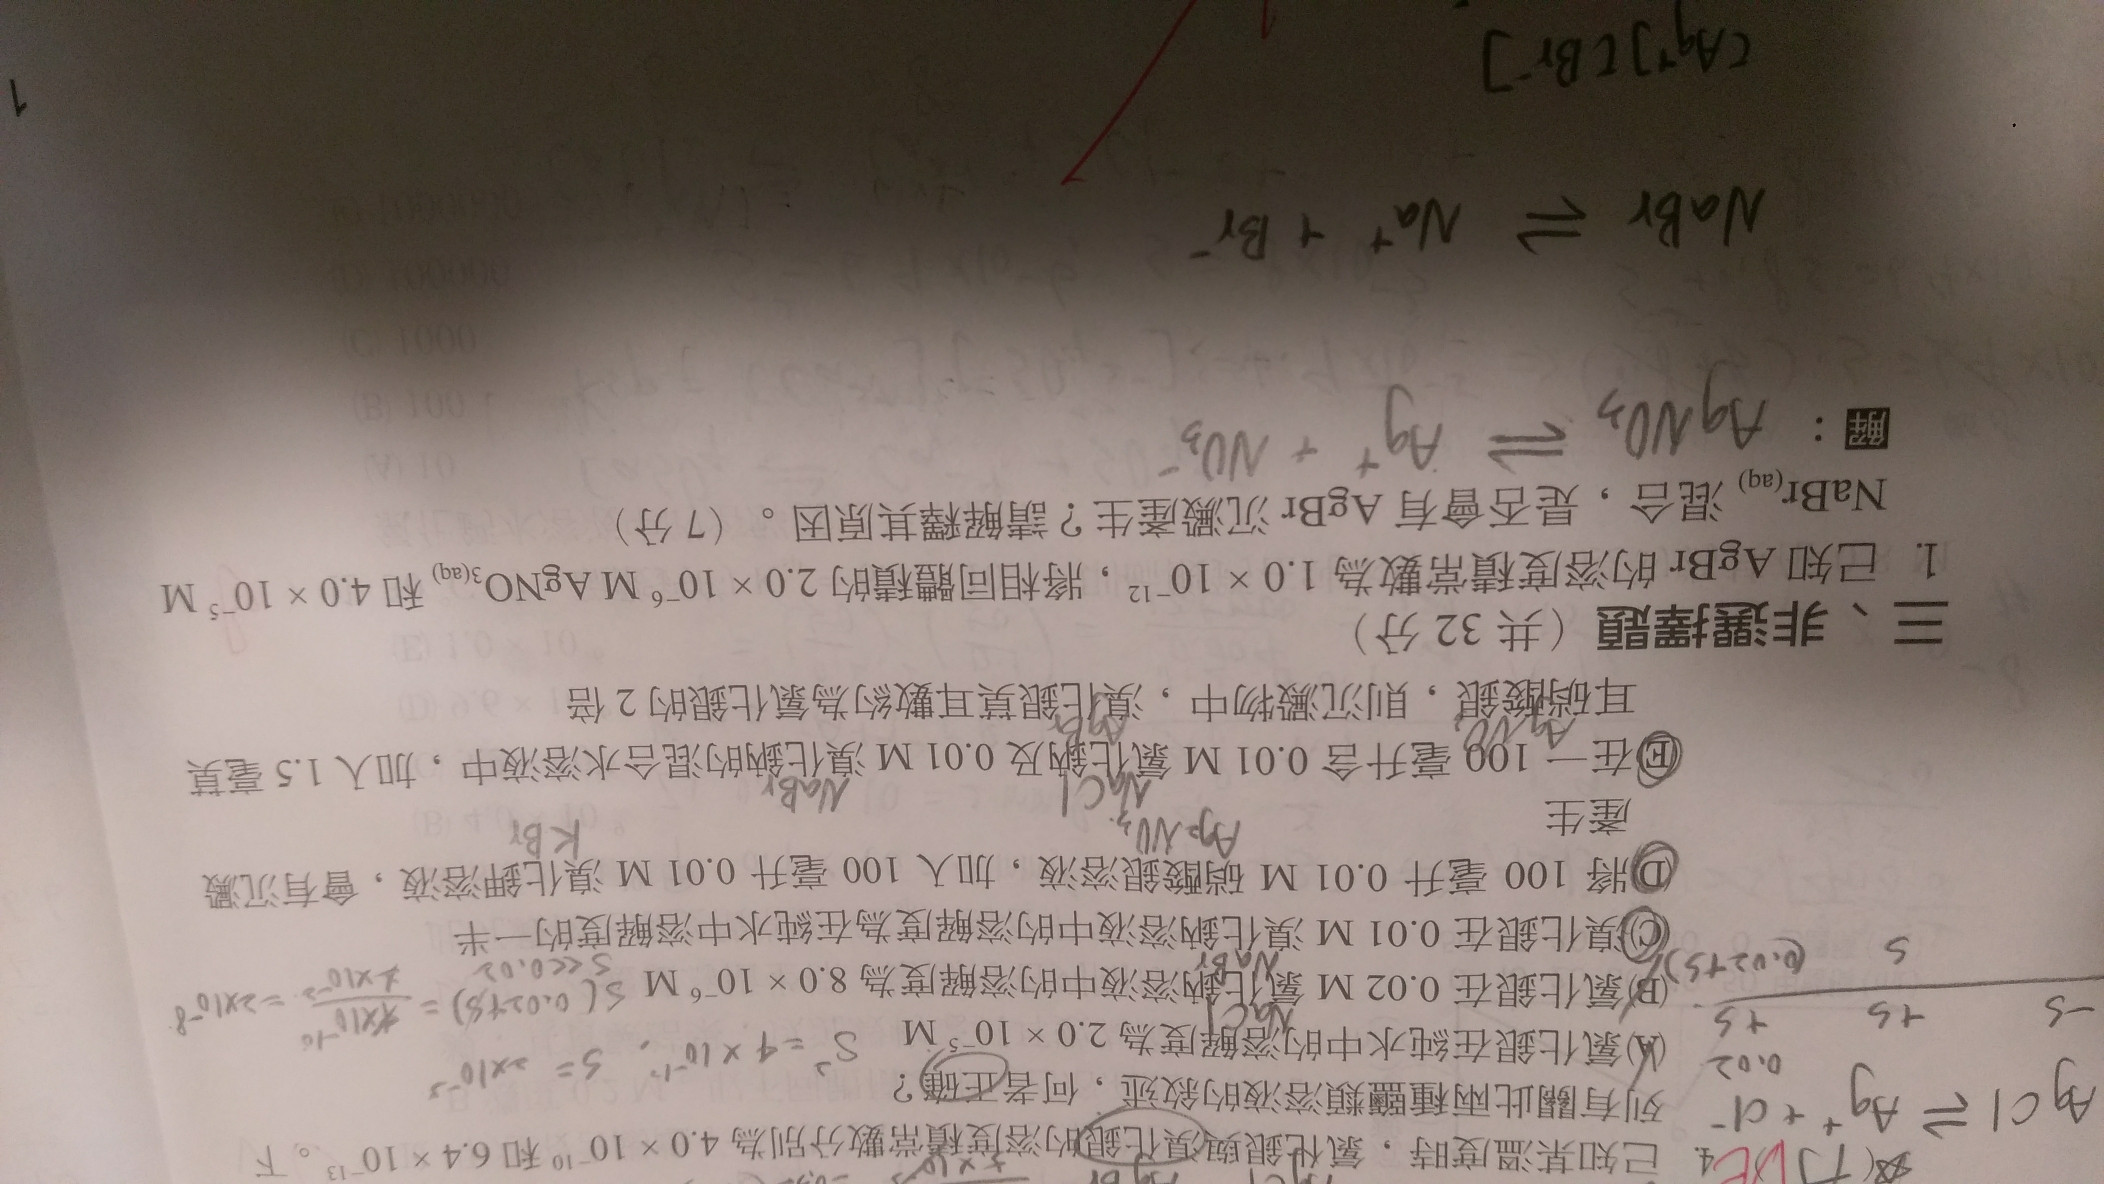 4. 已知某溫度時，氯化銀與溴化銀的溶度積常數分別為 4.0 × 10⁻¹⁰ 和 6.4 × 10⁻¹³。下
列有關此兩種鹽類溶液的敘述，何者正確？
(A)氯化銀在純水中的溶解度為 2.0 × 10⁻⁵ M
(B)氯化銀在 0.02 M 氯化鈉溶液中的溶解度為 8.0 × 10⁻⁶ M
(C)溴化銀在 0.01 M 溴化鈉溶液中的溶解度為在純水中溶解度的一半
(D)將 100 毫升 0.01 M 硝酸銀溶液，加入 100 毫升 0.01 M 溴化鉀溶液，會有沉澱
產生
(E)在一 100 毫升含 0.01 M 氯化鈉及 0.01 M 溴化鈉的混合水溶液中，加入 1.5 毫莫
耳硝酸銀，則沉澱物中，溴化銀莫耳數約為氯化銀的 2 倍
AgCl ⇌ Ag⁺ + Cl⁻
0.02
-S +S +S
S (0.02+S)
S(0.02+S) =
S<<0.02
NaCl
NaBr
AgNO₃
KBr
NaCl
NaBr
AgNO₃
AgBr
三、非選擇題（共 32 分）
1. 已知 AgBr 的溶度積常數為 1.0 × 10⁻¹²，將相同體積的 2.0 × 10⁻⁶ M AgNO₃(aq) 和 4.0 × 10⁻⁵ M
NaBr(aq) 混合，是否會有 AgBr 沉澱產生？請解釋其原因。（7 分）
解：AgNO₃ ⇌ Ag⁺ + NO₃⁻
NaBr ⇌ Na⁺ + Br⁻
[Ag⁺][Br⁻]
1